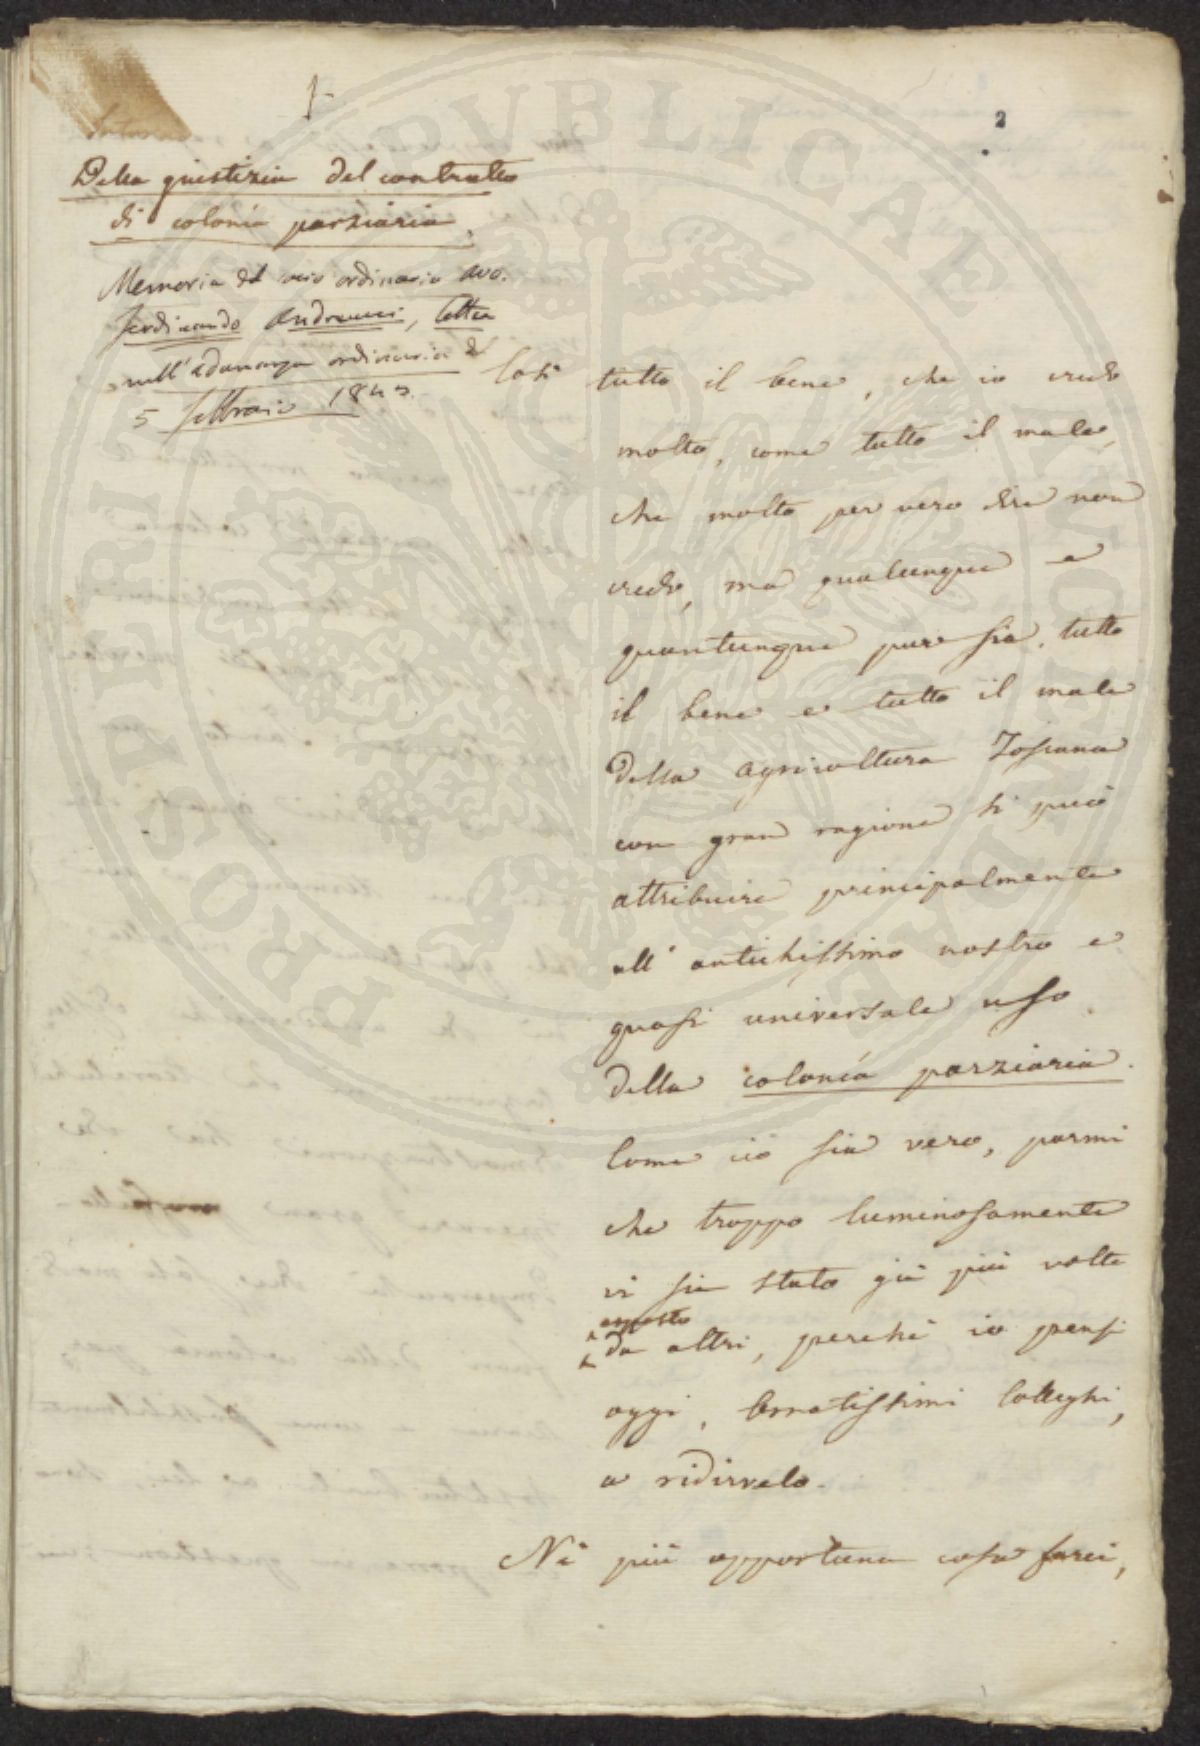 2
Della giustizia del contratto
di colonía parziaria.
Memoria del socio ordinario avv.
Ferdinando Andreucci, letta
nell'adunanza ordinaria del
5 febbraio 1843.
Così tutto il bene, che io credo
molto, come tutto il male,
che molto per vero dire non
credo, ma qualunque e
quantunque pure sia, tutto
il bene e tutto il male
della agricoltura Toscana
con gran ragione si può
attribuire principalmente
all'antichissimo nostro e
quasi universale uso
della colonía parziaria.
Come ciò sia vero, parmi
che troppo luminosamente
vi sia stato già più volte
esposto
da altri, perchè io pensi
oggi, Ornatissimi Colleghi,
a ridirvelo.
Nè più opportuna cosa farei,
PROSPERITATI PUBLICAE AUGENDAE